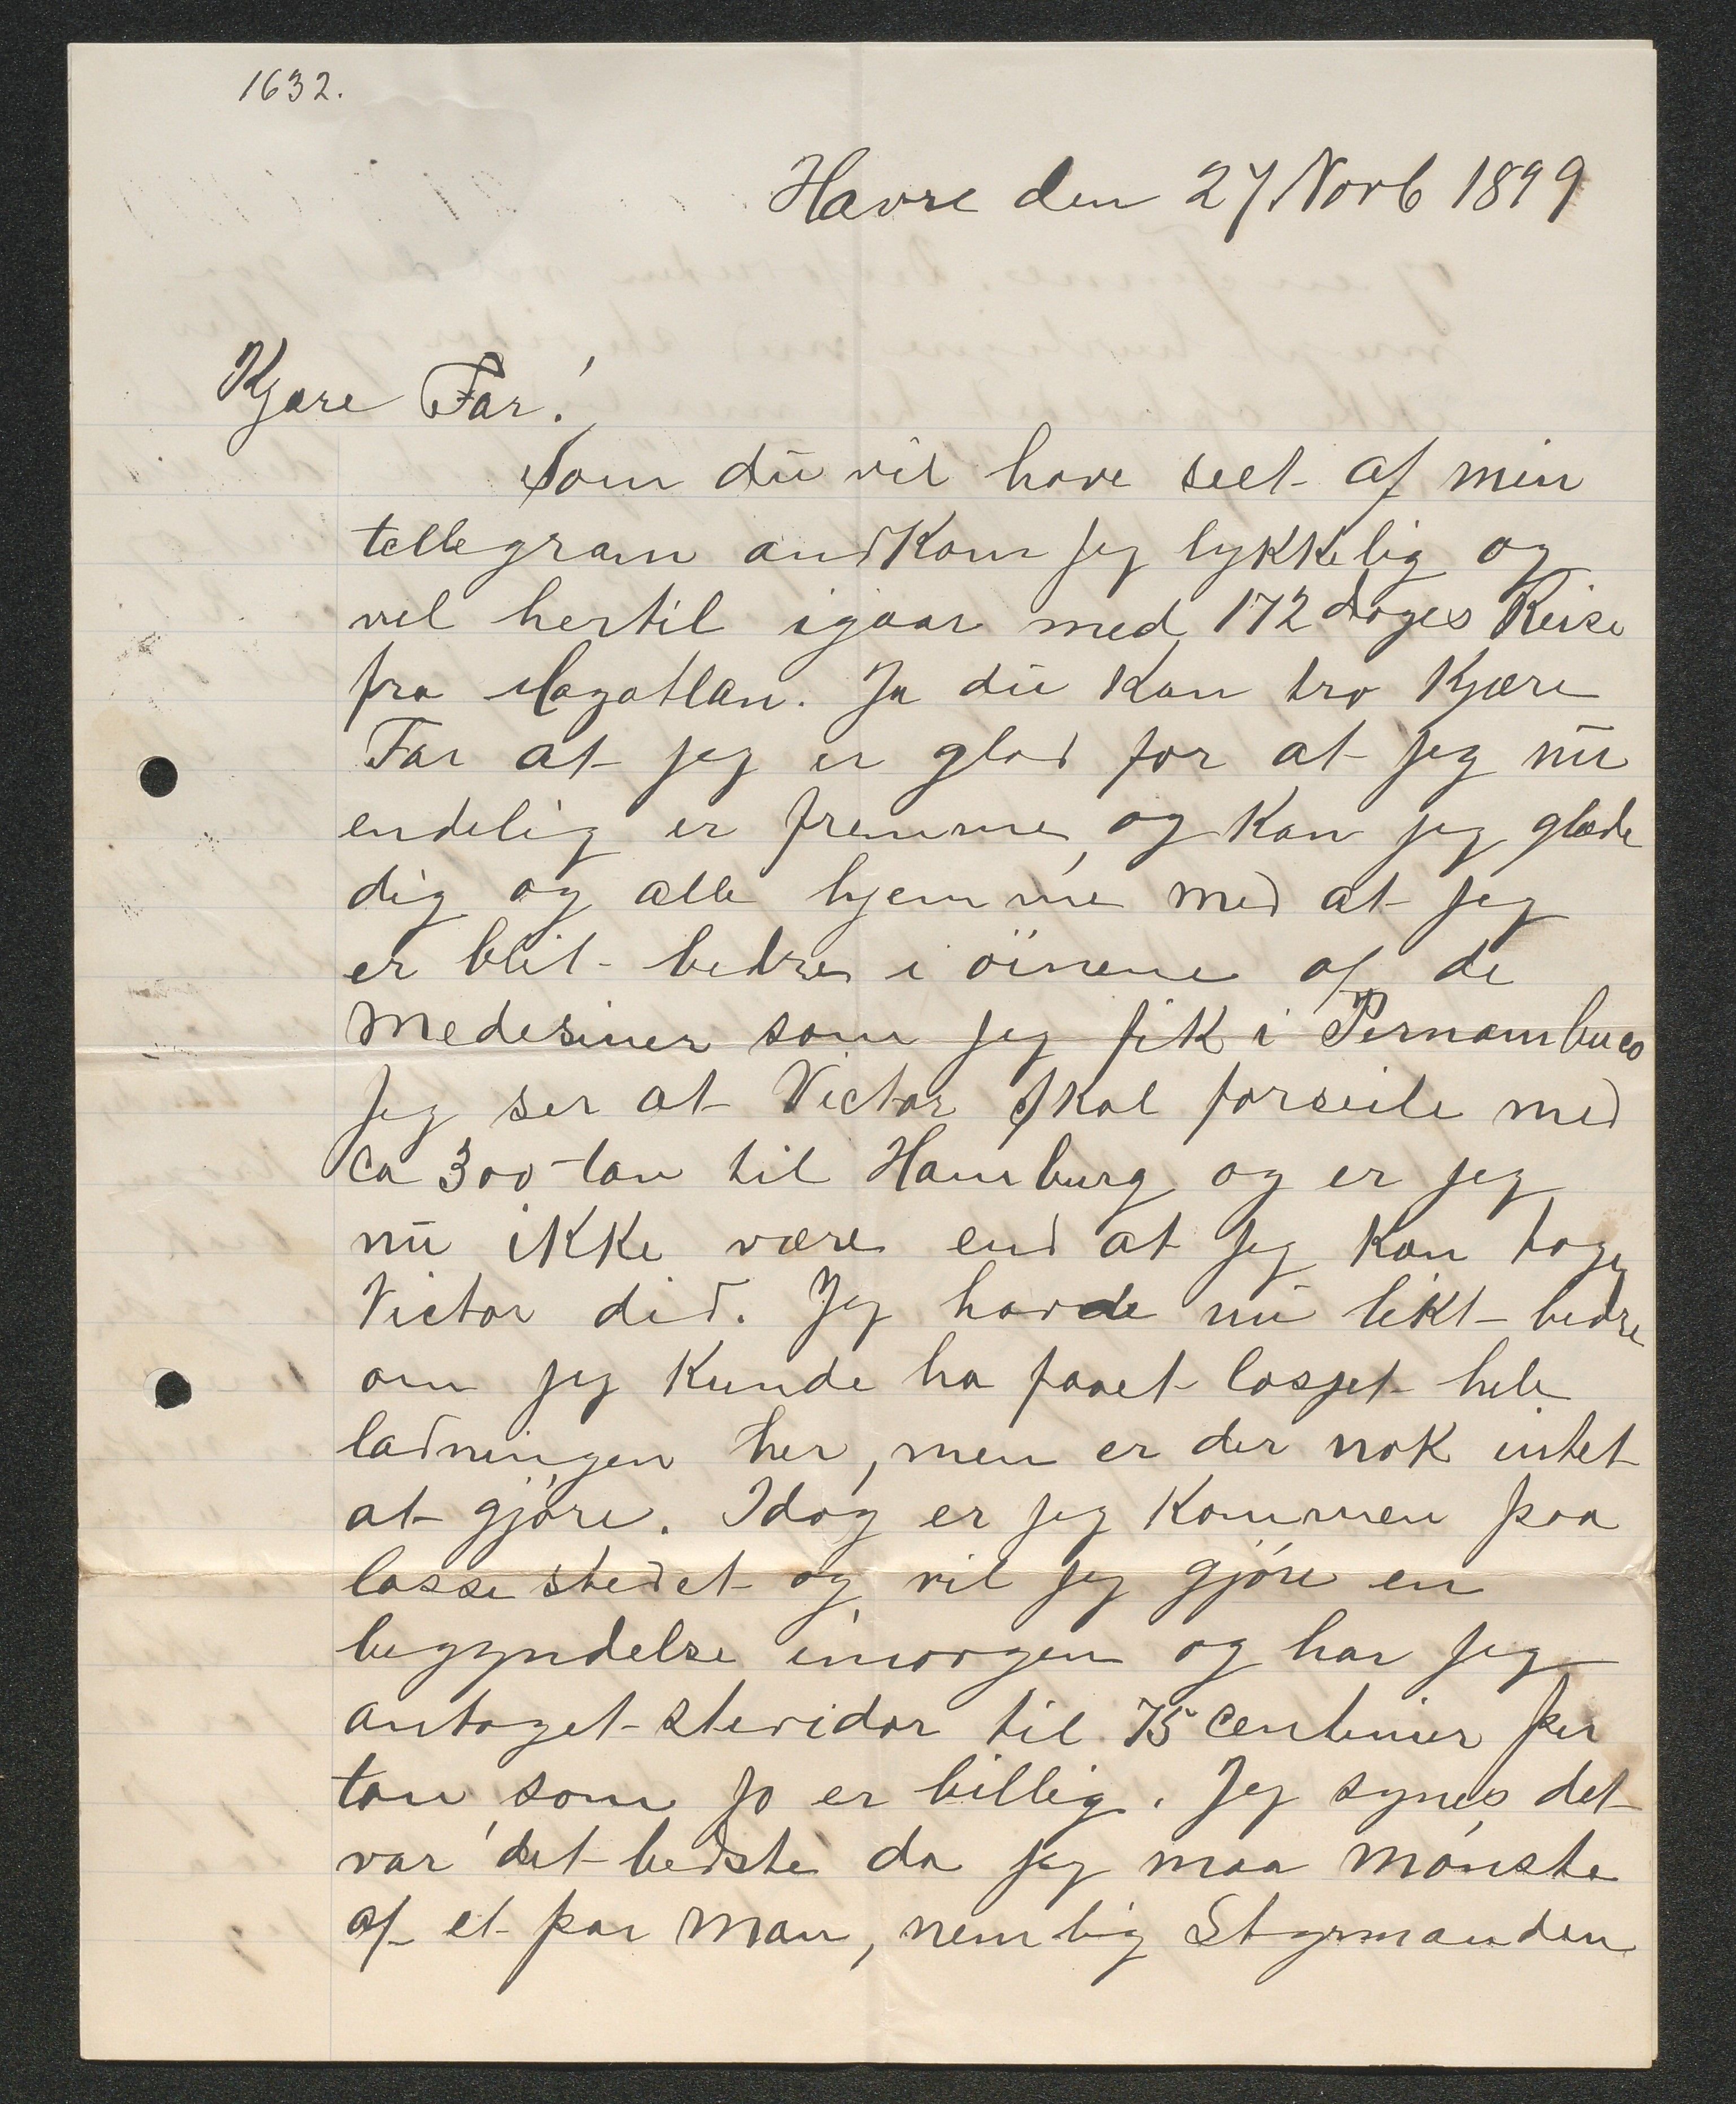 1632.
Havre den 27 Novb 1899
Kjære Far!
Som du vil have seet af min
tellegram andkom jeg lykkelig og
vel hertil igaar med 172 dages Reise
fra Mazatlan. Ja du kan tro Kjære
Far at jeg er glad for at jeg nu
endelig er fremme, og kan jeg glæde
dig og alle hjemme med at jeg
er blit bedre i öinene af de
medesiner som jeg fik i Pernambuco
Jeg ser at Victor skal forseile med
ca 300 ton til Hamburg og er jeg
nu ikke være end at jeg kan tage
Victor did. Jeg havde nu likt bedre
om jeg kunde ha faaet losset hele
ladningen her, men er der nok intet
at gjöre. Idag er jeg kommen paa
losse stedet og vil jeg gjöre en
begyndelse imorgen og har jeg
antaget stevidor til 75 centimer per
ton, som jo er billig. Jeg synes det
var det bedste da jeg maa mönste
af et par man, nemlig Styrmanden